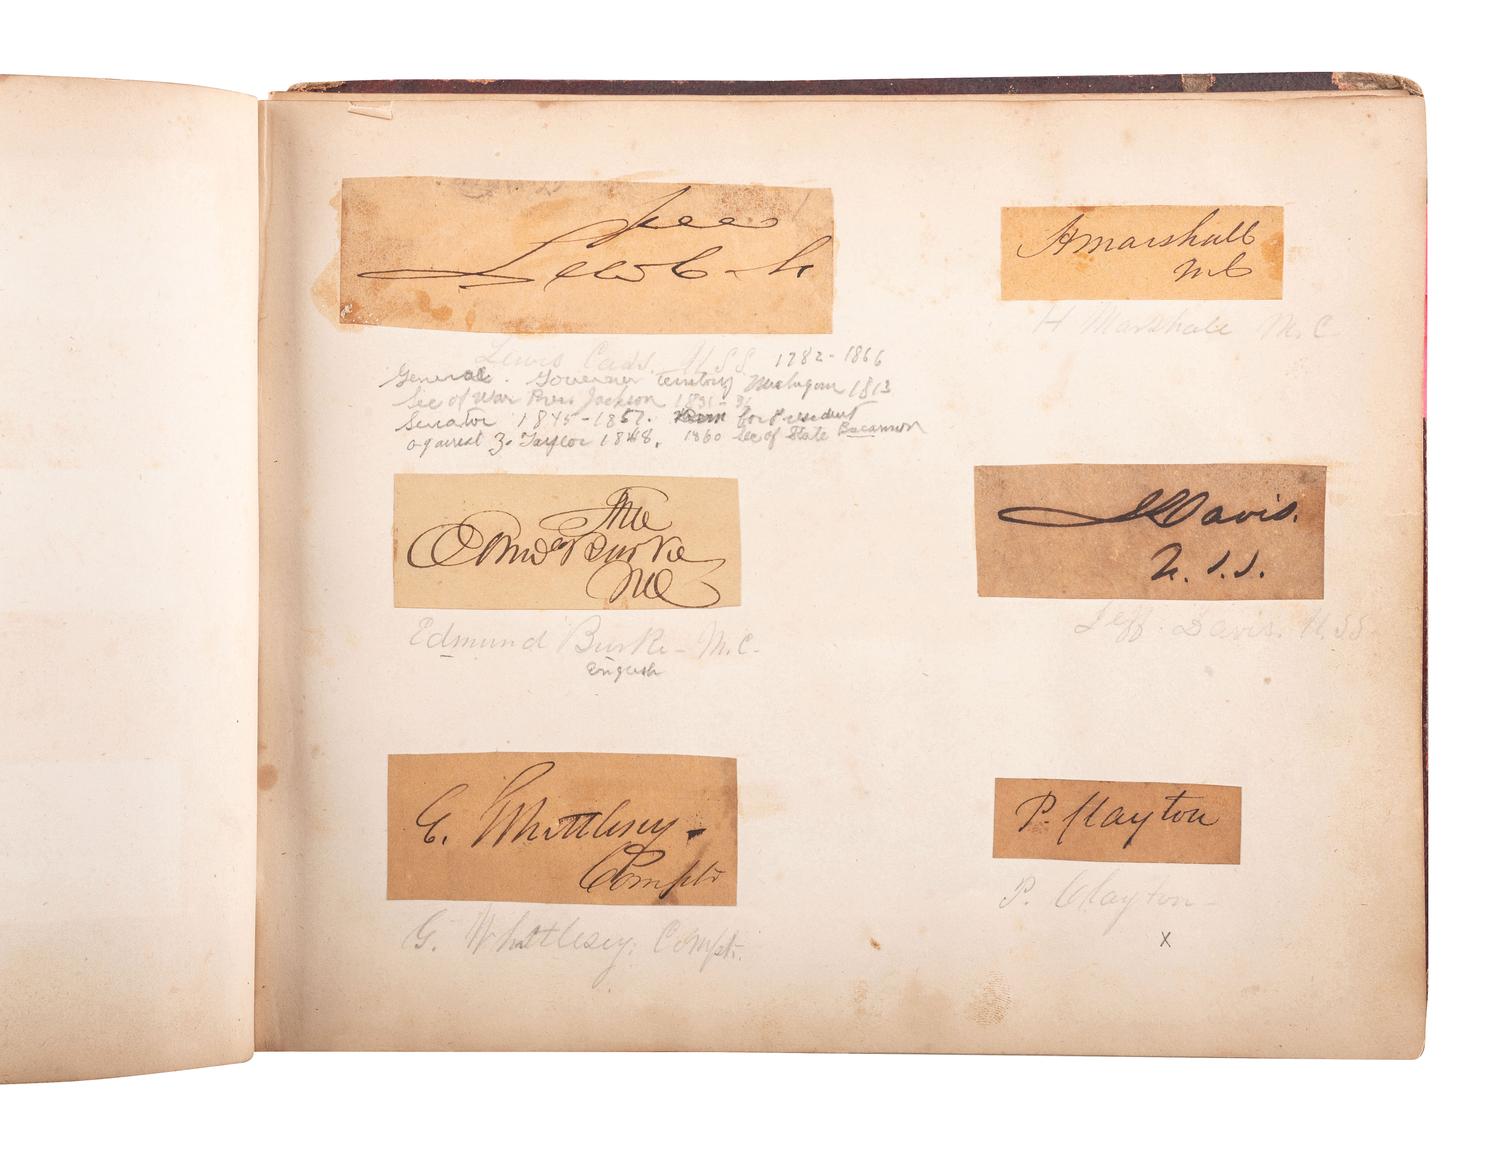 Free
Lew Cass
Lewis Cass. U.S.S. 1782-1866
General. Governer territory Michigan 1813
Sec of War Pres Jackson 1831-36
Senator 1845-1857. Ran for President
against Z. Taylor 1848. 1860 Sec of State Bucannon
H Marshall
MC
H Marshall M.C
Free
Edmd Burke
MC
Edmund Burke - M.C.
English
Jeffn Davis.
U.S.S.
Jeff. Davis. U.SS.
E. Whittlesey -
Compt
G. Whittlesey. Compt.
P. Clayton
P. Clayton -
x